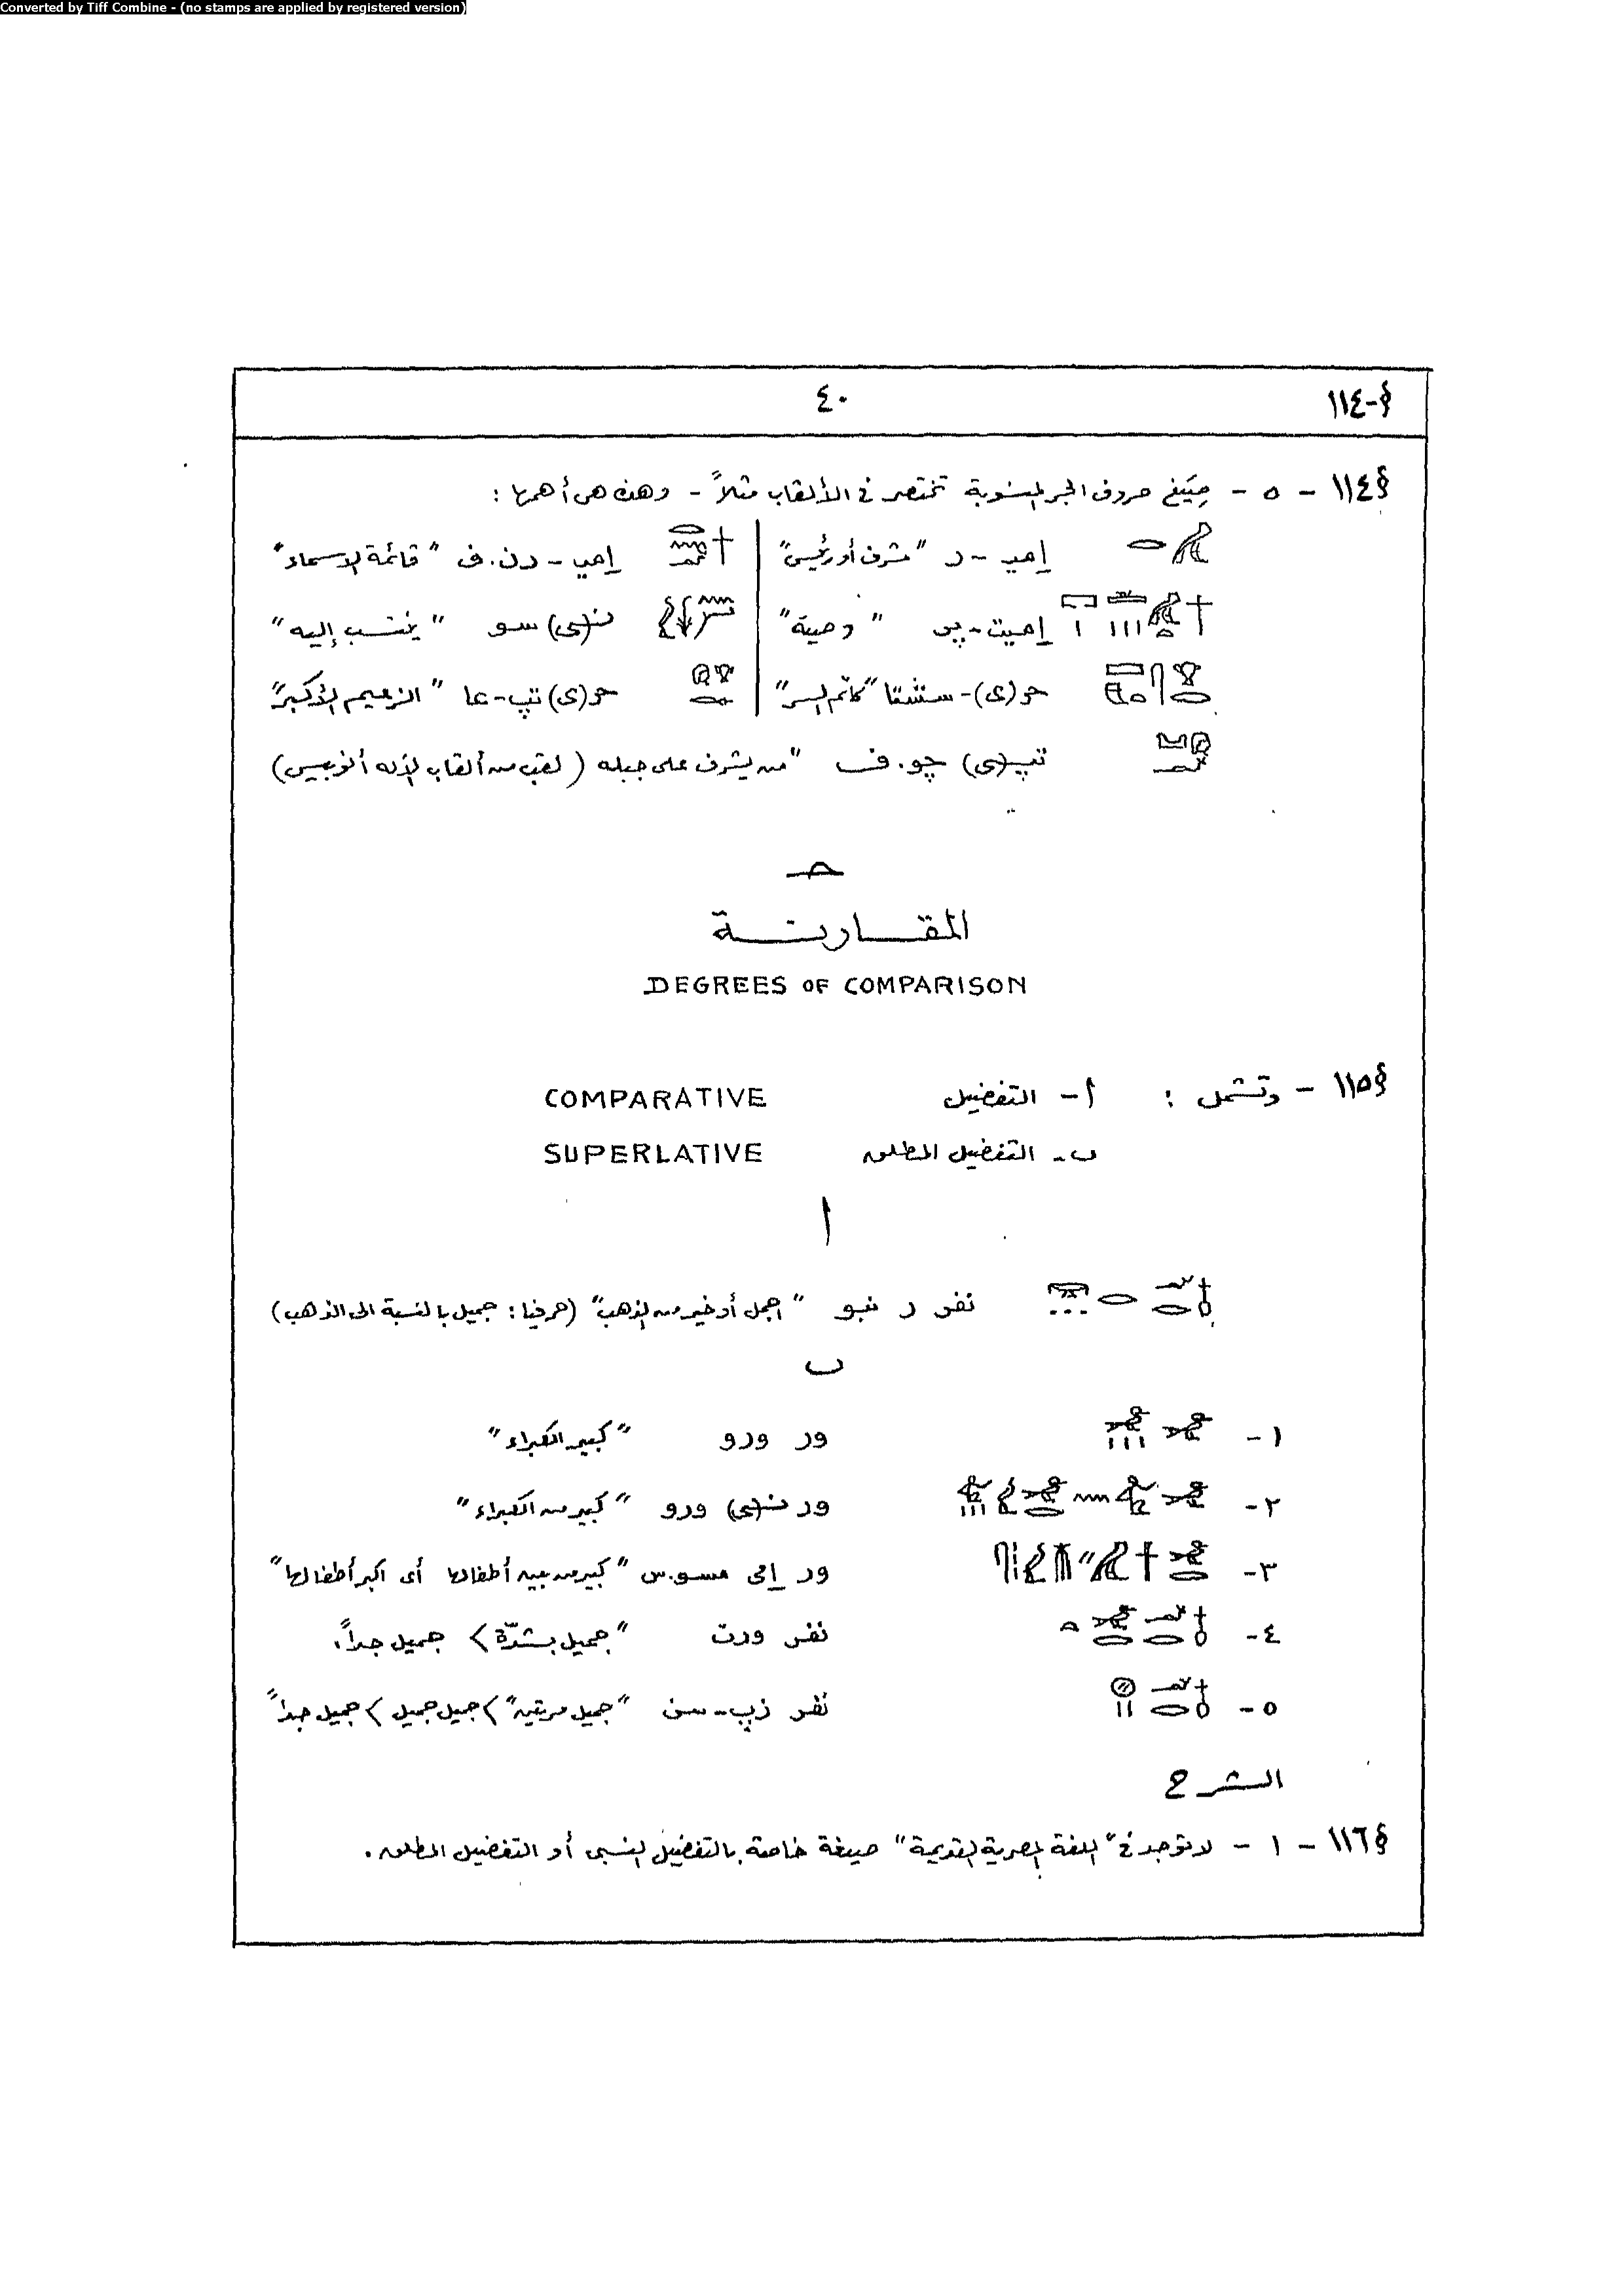 Converted by Tiff Combine - (no stamps are applied by registered version)
§-١١٤ ٤٠
§١١٤ - ٥ - صِيَغ حروف الجر المنسوبة تختصر فى الألقاب مثلاً - وهذه هى أهمها :
إمى - ر "مشرف أو رئيس" إمى - رن.ف "قائمة الاسماء"
إميت-پر "وصية" ن(ى) سو "ينتسب إليه"
حر(ى)-سشتا "كاتم السر" حر(ى) تپ-عا "الزعيم الأكبر"
تپ(ى) چو.ف "من يشرف على جبله (لقب من ألقاب الإله أنوبيس)
حـ
المقارنة
DEGREES OF COMPARISON
§١١٥ - وتشمل : أ- التفضيل COMPARATIVE
ب- التفضيل المطلق SUPERLATIVE
أ
نفر ر نبو "اجمل أو خير من الذهب" (حرفيا : جميل بالنسبة الى الذهب)
ب
١- ور ورو "كبير الكبراء"
٢- ور ن(ى) ورو "كبير من الكبراء"
٣- ور إمى مسو.س "كبير من بين أطفالها أى اكبر أطفالها"
٤- نفر ورت "جميل بشدّة > جميل جداً.
٥- نفر زپ-سن "جميل مرتين" > جميل جميل > جميل جداً"
الشرح
§١١٦ - ١ - لا توجد فى "اللغة المصرية القديمة" صيغة خاصة بالتفضيل النسبى أو التفضيل المطلق.